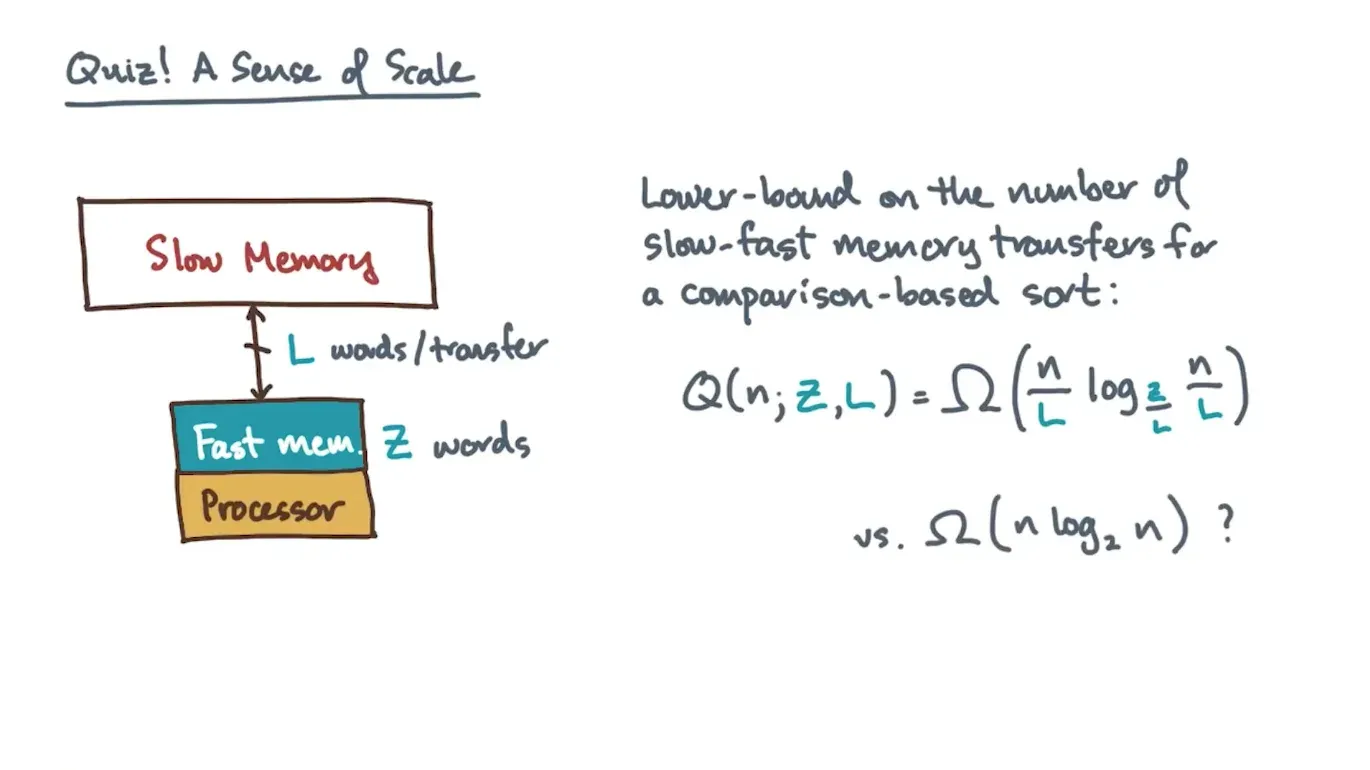 Quiz! A Sense of Scale
Slow Memory
L words/transfer
Fast mem.
Z words
Processor
Lower-bound on the number of
slow-fast memory transfers for
a comparison-based sort:
Q(n; Z, L) = Ω(n/L log_{Z/L} n/L)
vs. Ω(n log₂ n) ?